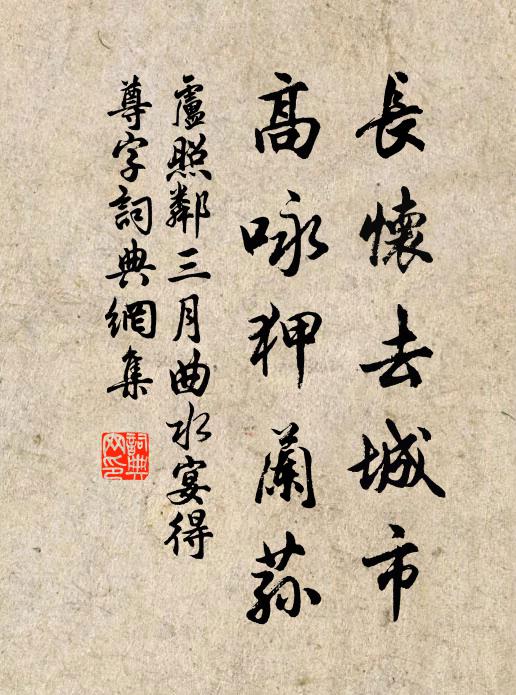 長懷去城市
高咏狎蘭蓀
盧照鄰三月曲水宴得
尊字詞典網集
詞典
网印